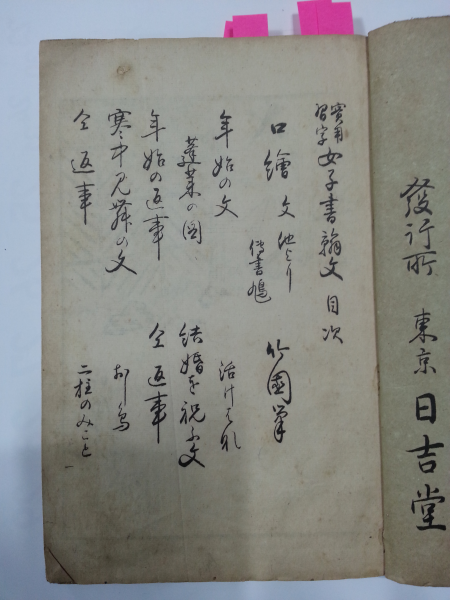 發行所 東京 日吉堂
實用習字 女子書翰文 目次
口繪 文使ひ 竹園筆
傳書鳩
年始の文 活け花
蓬萊の圖 結婚を祝ふ文
年始の返事 仝返事
寒中見舞の文 おし鳥
仝返事 二柱のみこと
一